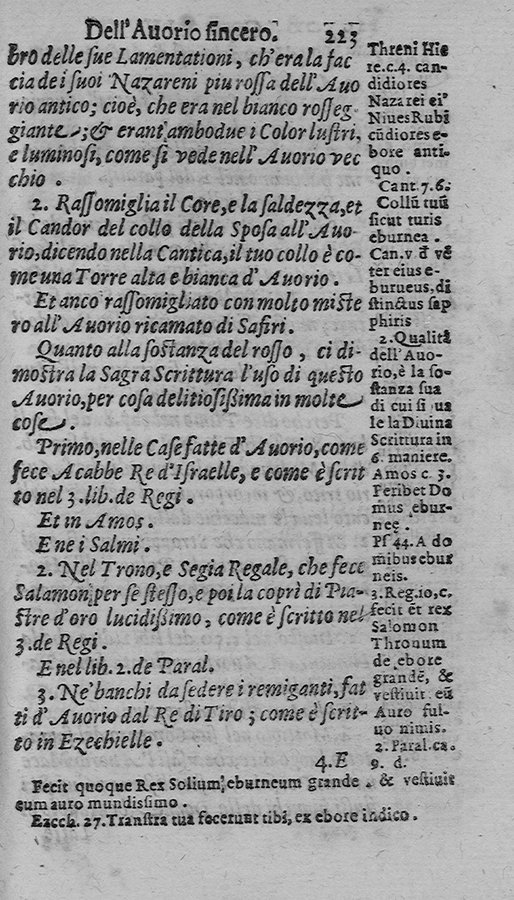 Dell'Avorio sincero. 223
bro delle sue Lamentationi, ch'era la fac
cia de i suoi Nazareni piu rossa dell'Avo
rio antico; cioè, che era nel bianco rosseg-
giante; & erant ambodue i Color lustri,
e luminosi, come si vede nell'Avorio vec
chio.
2. Rassomiglia il Core, e la saldezza, et
il Candor del collo della Sposa all'Avo-
rio, dicendo nella Cantica, il tuo collo è co-
me una Torre alta e bianca d'Avorio.
Et anco rassomigliato con molto miste
ro all'Avorio ricamato di Safiri.
Quanto alla sostanza del rosso, ci di-
mostra la Sagra Scrittura l'uso di questo
Avorio, per cosa delitiosissima in molte
cose.
Primo, nelle Case fatte d'Avorio, come
fece Acabbe Re d'Israelle, e come è scrit
to nel 3. lib. de Regi.
Et in Amos.
E ne i Salmi.
2. Nel Trono, e Segia Regale, che fece
Salamon per se stesso, e poi la coprì di Pia-
stre d'oro lucidissimo, come è scritto nel
3. de Regi.
E nel lib. 2. de Paral.
3. Ne' banchi da sedere i remiganti, fat
ti d'Avorio dal Re di Tiro; come è scrit-
to in Ezechielle.
4. E
Threni Hie
re. c. 4. can-
didiores
Nazarei ei'
Niues Rubi
cũdiores e-
bore anti-
quo.
Cant. 7. 6.
Collũ tuũ
sicut turis
eburnea.
Can. v. đ vẽ
ter eius e-
burneus, di
stinctus sap
phiris
2. Qualità
dell'Avo-
rio, è la so-
stanza sua
di cui si ua
le la Diuina
Scrittura in
6. maniere.
Amos c. 3.
Peribet Do
mus ebur-
neę.
Ps 44. A do
mibus ebur
neis.
3. Reg. 10, c.
fecit et rex
Salomon
Thronum
de ebore
grandẽ, &
vestiuit eũ
Auro ful-
uo nimis.
2. Paral. ca.
9. d.
Fecit quoque Rex Solium eburneum grande. & vestiuit
eum auro mundissimo.
Ezech. 27. Transtra tua fecerunt tibi, ex ebore indico.